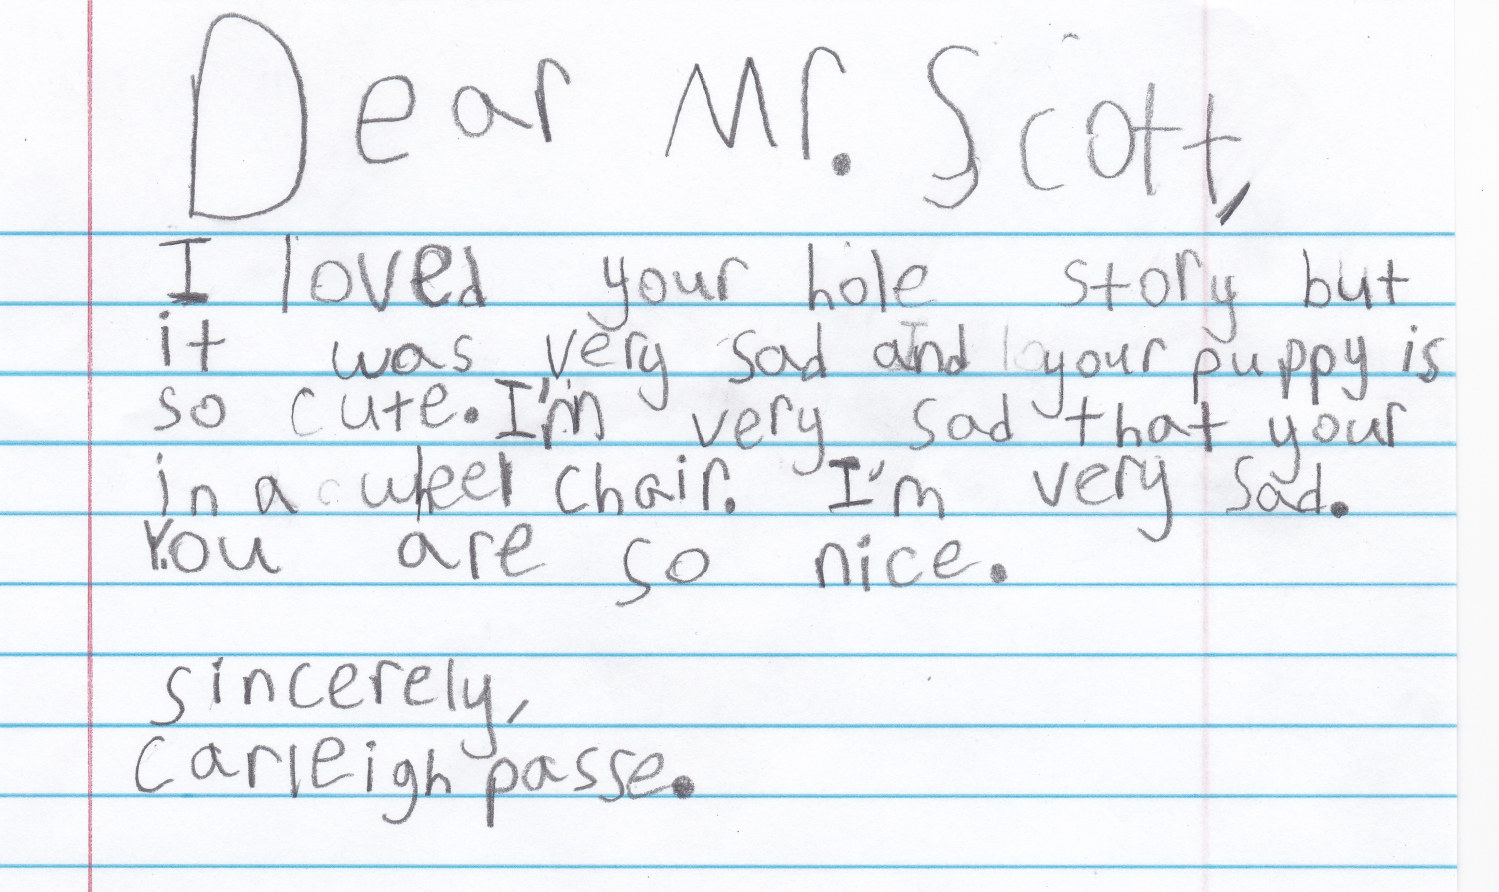 Dear Mr. Scott,
I loved your hole story but
it was very sad and your puppy is
so cute. I'm very sad that your
in a wheel chair. I'm very sad.
You are so nice.
sincerely,
carleigh passe.